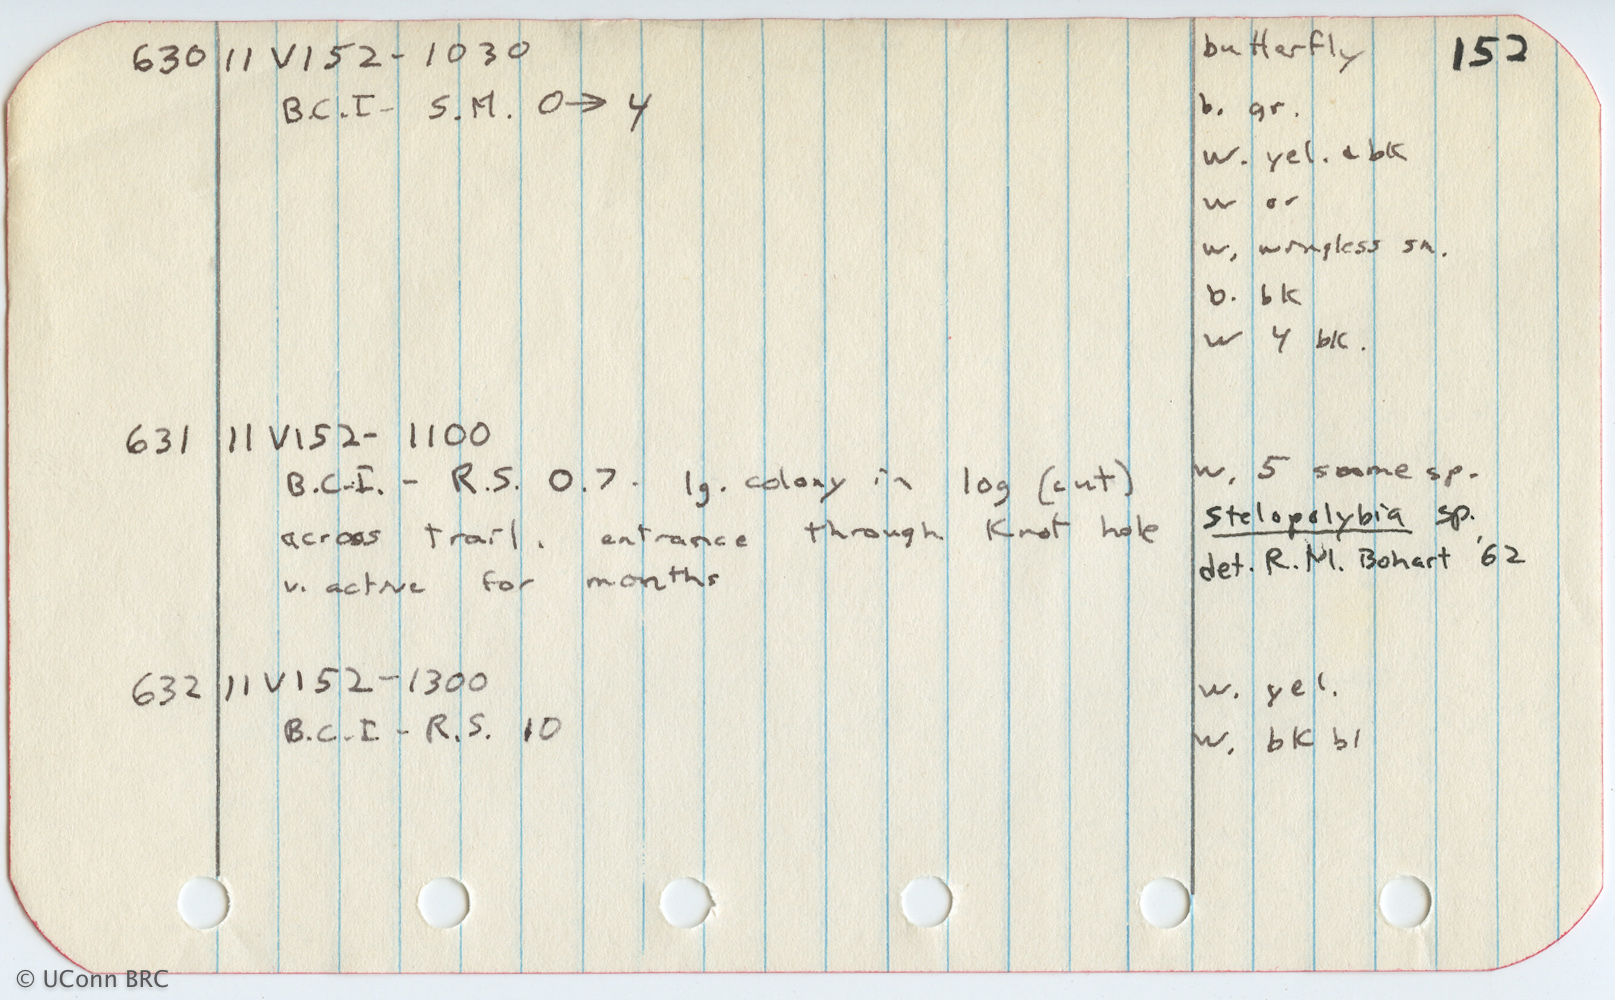 152
630 11 VI52- 1030
B.C.I- S.M. 0→ 4
butterfly
b. gr.
w. yel. & bk
w or
w, wingless sm.
b. bk
w 4 bk.
631 11 VI52- 1100
B.C.I. - R.S. 0.7. lg. colony in log (cut)
across trail. entrance through Knot hole
v. active for months
w, 5 same sp.
Stelopolybia sp.
det. R.M. Bohart '62
632 11 VI52-1300
B.C.I - R.S. 10
w. yel.
w. bk bl
© UConn BRC